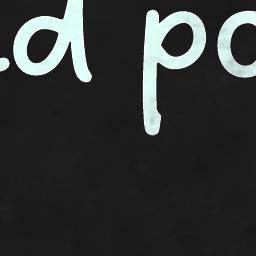 d po